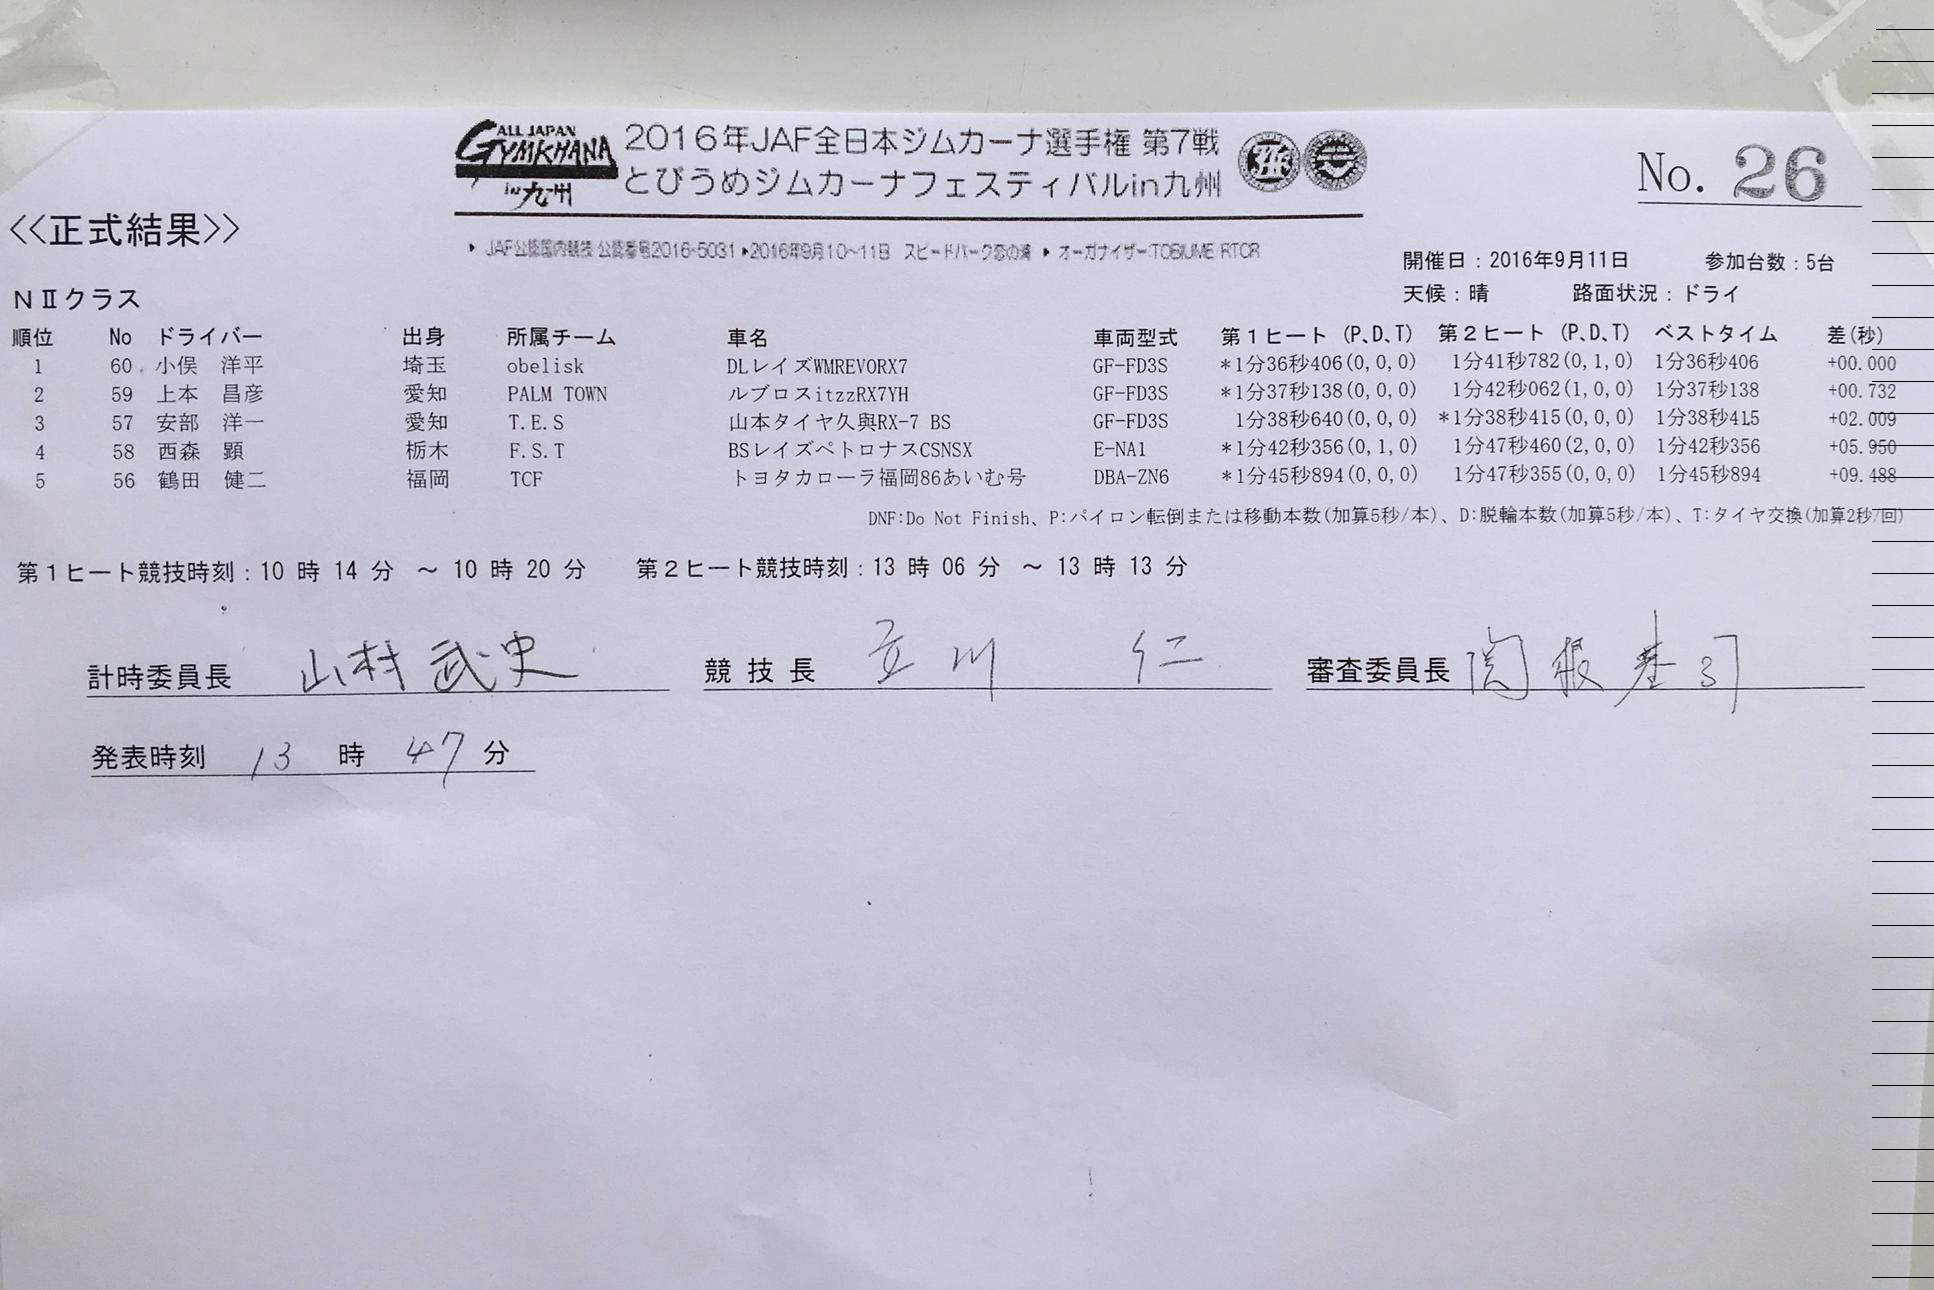 ALL JAPAN
GYMKHANA
in 九州
2016年JAF全日本ジムカーナ選手権 第7戦
とびうめジムカーナフェスティバルin九州
No. 26
<<正式結果>>
▶ JAF公認国内競技 公認番号2016-5031 ▶2016年9月10~11日 スピードパーク恋の浦 ▶ オーガナイザー:TOBIUME/RTCR
開催日：2016年9月11日 参加台数：5台
天候：晴 路面状況：ドライ
NⅡクラス
順位 No ドライバー 出身 所属チーム 車名 車両型式 第1ヒート (P,D,T) 第2ヒート (P,D,T) ベストタイム 差(秒)
1 60 小俣 洋平 埼玉 obelisk DLレイズWMREVORX7 GF-FD3S *1分36秒406(0,0,0) 1分41秒782(0,1,0) 1分36秒406 +00.000
2 59 上本 昌彦 愛知 PALM TOWN ルブロスitzzRX7YH GF-FD3S *1分37秒138(0,0,0) 1分42秒062(1,0,0) 1分37秒138 +00.732
3 57 安部 洋一 愛知 T.E.S 山本タイヤ久興RX-7 BS GF-FD3S 1分38秒640(0,0,0) *1分38秒415(0,0,0) 1分38秒415 +02.009
4 58 西森 顕 栃木 F.S.T BSレイズペトロナスCSNSX E-NA1 *1分42秒356(0,1,0) 1分47秒460(2,0,0) 1分42秒356 +05.950
5 56 鶴田 健二 福岡 TCF トヨタカローラ福岡86あいむ号 DBA-ZN6 *1分45秒894(0,0,0) 1分47秒355(0,0,0) 1分45秒894 +09.488
DNF:Do Not Finish、P:パイロン転倒または移動本数(加算5秒/本)、D:脱輪本数(加算5秒/本)、T:タイヤ交換(加算2秒/回)
第1ヒート競技時刻：10 時 14 分 ～ 10 時 20 分 第2ヒート競技時刻：13 時 06 分 ～ 13 時 13 分
計時委員長 山村 武史 競技長 立川 仁 審査委員長 関根基司
発表時刻 13 時 47 分